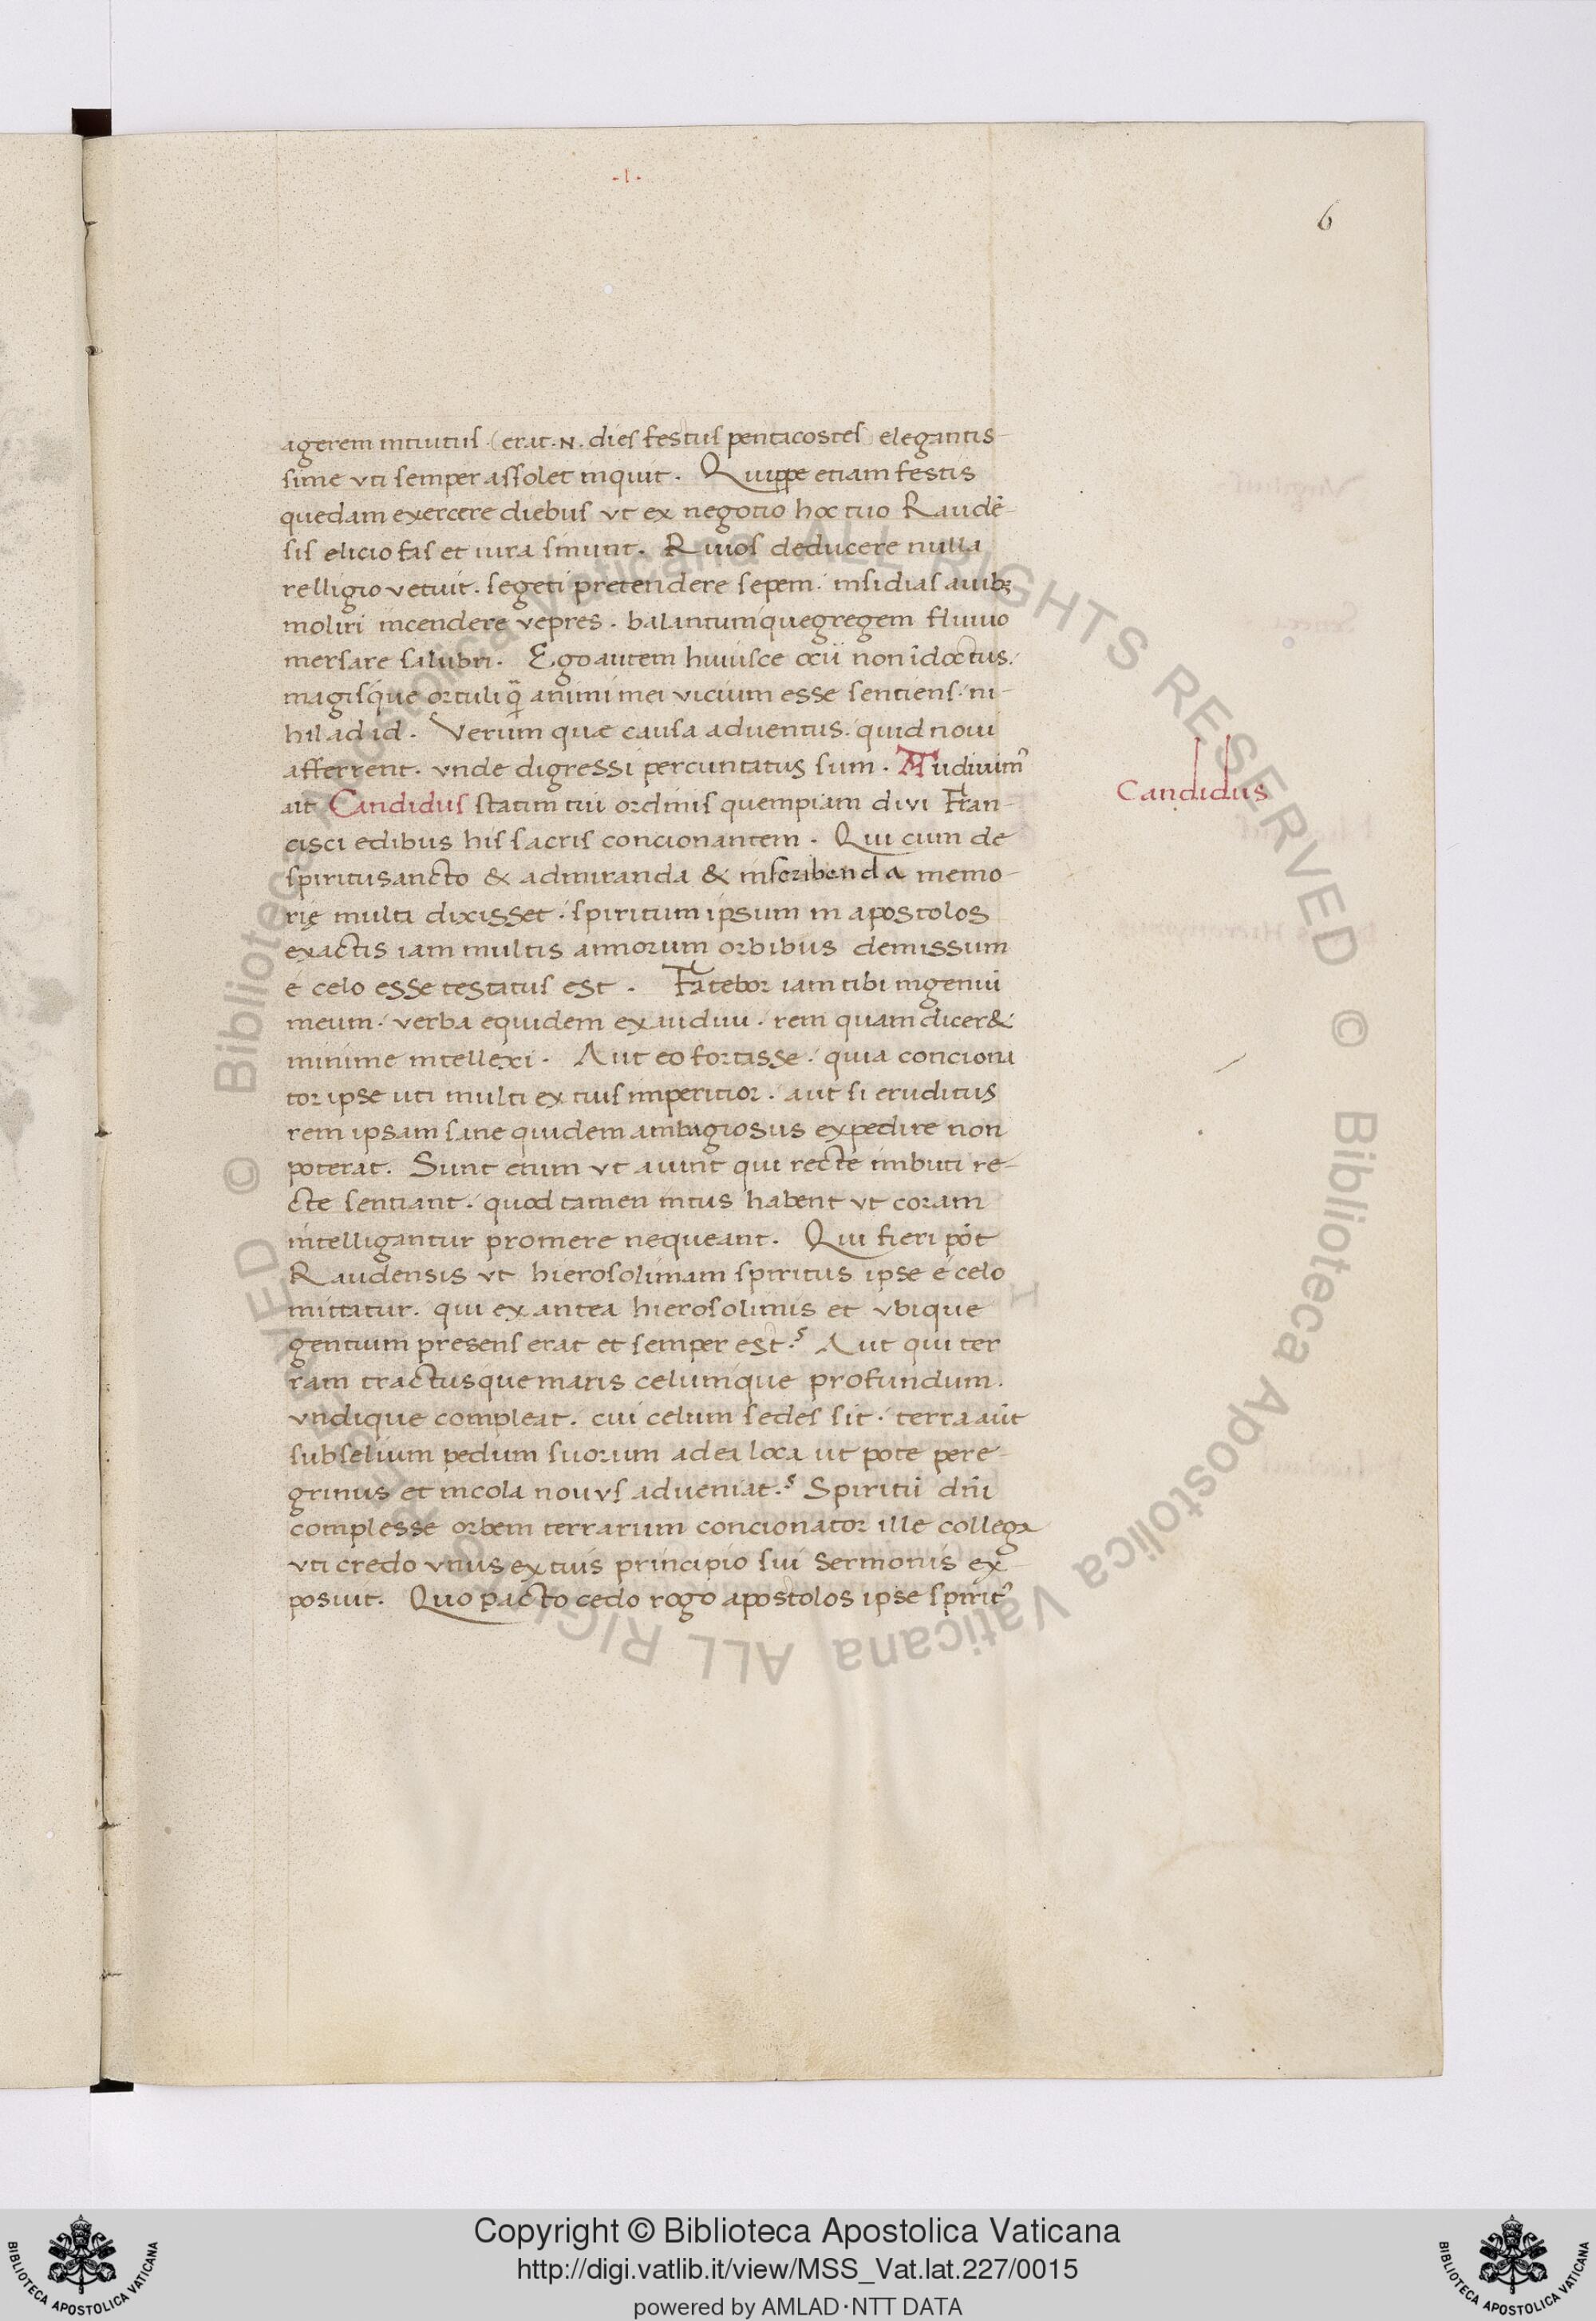 -I-
6
agerem intuitus (erat .N. dies festus pentacostes) elegantis-
sime vti semper assolet inquit. Quippe etiam festis
quedam exercere diebus vt ex negotio hoc tuo Raudē-
sis elicio fas et iura sinunt. Riuos deducere nulla
relligio vetuit. segeti pretendere sepem. insidias auibꝫ
moliri incendere vepres. balantumque gregem fluuio
mersare salubri. Ego autem huiusce ocii non īdoctus.
magisque ortuli q̄ animi mei vicium esse sentiens. ni-
hil ad id. Verum quæ causa aduentus. quid noui
afferrent. vnde digressi percuntatus sum. Audiuimꝰ
ait Candidus statim tui ordinis quempiam divi Fran-
cisci edibus his sacris concionantem. Qui cum de
spiritusancto & admiranda & inscribenda memo-
rię multa dixisset. spiritum ipsum in apostolos
exactis iam multis annorum orbibus demissum
é celo esse testatus est. Fatebor iam tibi ingeniū
meum. verba equidem exaudiui. rem quam dicer&
minime intellexi. Aut eo fortasse. quia conciona
tor ipse uti multi ex tuis imperitior. aut si eruditus
rem ipsam sane quidem ambagiosus expedire non
poterat. Sunt etiam vt aiunt qui recte imbuti re-
cte sentiant. quod tamen intus habent vt coram
intelligantur promere nequeant. Qui fieri pōt
Raudensis vt hierosolimam spiritus ipse é celo
mittatur. qui ex antea hierosolimis et vbique
gentium presens erat et semper est? Aut qui ter
ram tractusque maris celumque profundum.
vndique compleat. cui celum sedes sit. terra aūt
subselium pedum suorum ad ea loca ut pote pere-
grinus et incola nouvs adueniat? Spiritū dn̄i
complesse orbem terrarum concionator ille collega
vti credo vnus ex tuis principio sui sermonis ex
posuit. Quo pacto cedo rogo apostolos ipse spiritꝰ
Candidus
© Biblioteca Apostolica Vaticana ALL RIGHTS RESERVED © Biblioteca Apostolica Vaticana ALL RIGHTS RESERVED
Copyright © Biblioteca Apostolica Vaticana
http://digi.vatlib.it/view/MSS_Vat.lat.227/0015
powered by AMLAD·NTT DATA
BIBLIOTECA APOSTOLICA VATICANA
BIBLIOTECA APOSTOLICA VATICANA